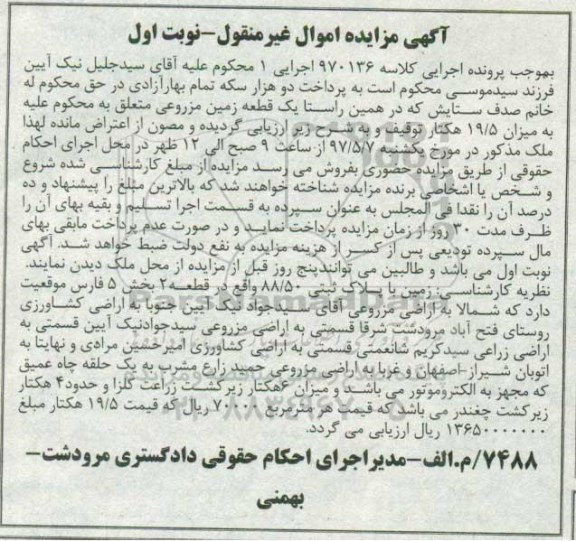 آگهی مزایده اموال غیرمنقول-نوبت اول
بموجب پرونده اجرایی کلاسه ۹۷۰۱۳۶ اجرایی ۱ محکوم علیه آقای سیدجلیل نیک آیین
فرزند سیدموسی محکوم است به پرداخت دو هزار سکه تمام بهارآزادی در حق محکوم له
خانم صدف ستایش که در همین راستا یک قطعه زمین مزروعی متعلق به محکوم علیه
به میزان ۱۹/۵ هکتار توقیف و به شرح زیر ارزیابی گردیده و مصون از اعتراض مانده لهذا
ملک مذکور در مورخ یکشنبه ۹۷/۵/۷ از ساعت ۹ صبح الی ۱۲ ظهر در محل اجرای احکام
حقوقی از طریق مزایده حضوری بفروش می رسد مزایده از مبلغ کارشناسی شده شروع
و شخص یا اشخاصی برنده مزایده شناخته خواهند شد که بالاترین مبلغ را پیشنهاد و ده
درصد آن را نقدا فی المجلس به عنوان سپرده به قسمت اجرا تسلیم و بقیه بهای آن را
ظرف مدت ۳۰ روز از زمان مزایده پرداخت نمایند و در صورت عدم پرداخت مابقی بهای
مال سپرده تودیعی پس از کسر از هزینه مزایده به نفع دولت ضبط خواهد شد. آگهی
نوبت اول می باشد و طالبین می توانندپنج روز قبل از مزایده از محل ملک دیدن نمایند.
نظریه کارشناسی: زمین با پلاک ثبتی ۸۸/۵۰ واقع در قطعه۲ بخش ۵ فارس موقعیت
دارد که شمالا به اراضی مزروعی آقای سیدجواد نیک آیین جنوبا به اراضی کشاورزی
روستای فتح آباد مرودشت شرقا قسمتی به اراضی مزروعی سیدجوادنیک آیین قسمتی به
اراضی زراعی سیدکریم شانعمتی قسمتی به اراضی کشاورزی امیرحسین مرادی و نهایتا به
اتوبان شیراز-اصفهان و غربا به اراضی مزروعی حمید زارع مشرب به یک حلقه چاه عمیق
که مجهز به الکتروموتور می باشد و میزان ۶هکتار زیرکشت زراعت کلزا و حدود۴ هکتار
زیرکشت چغندر می باشد که قیمت هر مترمربع ریال که قیمت ۱۹/۵ هکتار مبلغ
۱۳۶۵۰۰۰۰۰۰۰ ریال ارزیابی می گردد.
۷۴۸۸/م.الف-مدیراجرای احکام حقوقی دادگستری مرودشت-
بهمنی